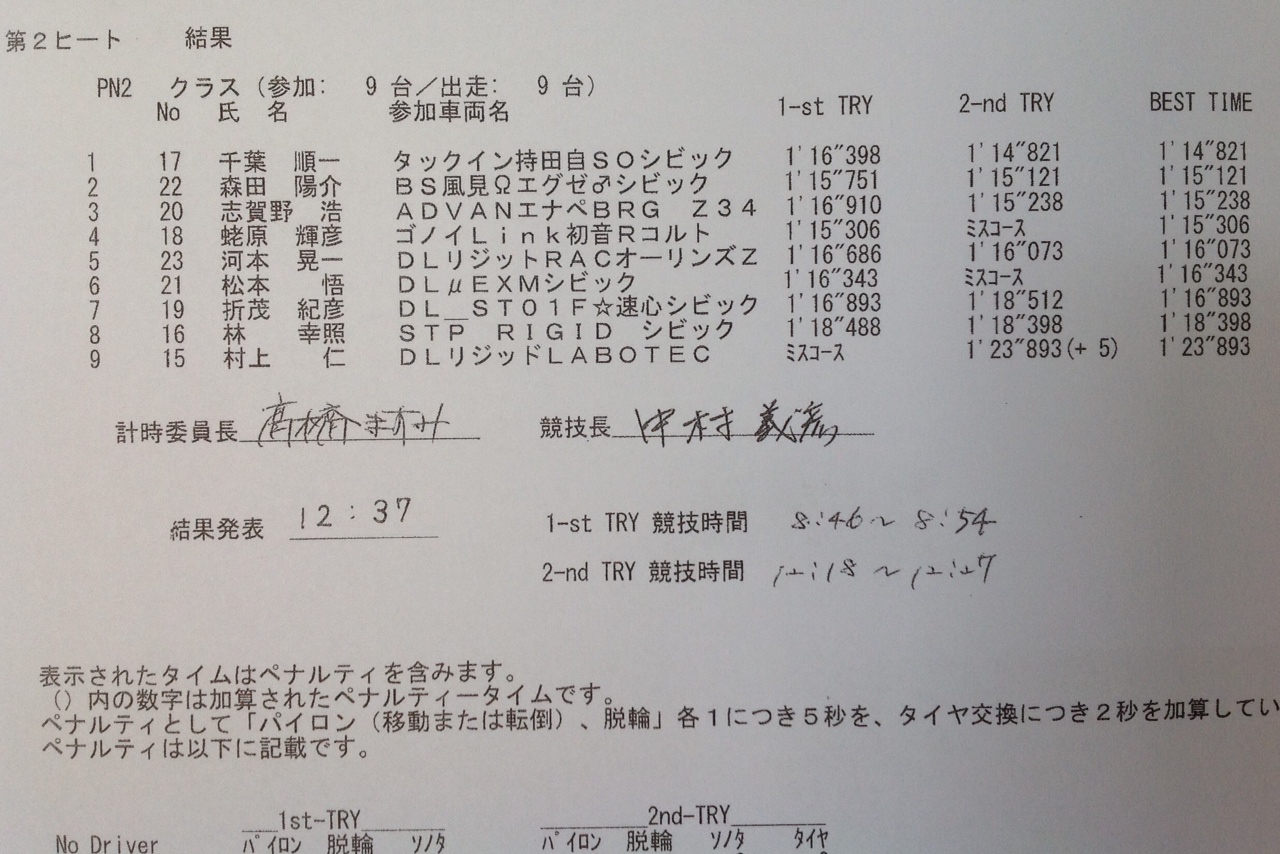 第2ヒート 結果
PN2 クラス (参加: 9 台/出走: 9 台)
No 氏 名 参加車両名 1-st TRY 2-nd TRY BEST TIME
1 17 千葉 順一 タックイン持田自SOシビック 1'16"398 1'14"821 1'14"821
2 22 森田 陽介 BS風見Ωエグゼ♂シビック 1'15"751 1'15"121 1'15"121
3 20 志賀野 浩 ADVANエナペBRG Z34 1'16"910 1'15"238 1'15"238
4 18 蛯原 輝彦 ゴノイLink初音Rコルト 1'15"306 ミスコース 1'15"306
5 23 河本 晃一 DLリジットRACオーリンズZ 1'16"686 1'16"073 1'16"073
6 21 松本 悟 DLμEXMシビック 1'16"343 ミスコース 1'16"343
7 19 折茂 紀彦 DL_ST01F☆速心シビック 1'16"893 1'18"512 1'16"893
8 16 林 幸照 STP RIGID シビック 1'18"488 1'18"398 1'18"398
9 15 村上 仁 DLリジッドLABOTEC ミスコース 1'23"893(+ 5) 1'23"893
計時委員長 高橋 競技長 中村 義彦
結果発表 12:37 1-st TRY 競技時間 8:46~8:54
2-nd TRY 競技時間 12:18~12:27
表示されたタイムはペナルティを含みます。
()内の数字は加算されたペナルティータイムです。
ペナルティとして「パイロン(移動または転倒)、脱輪」各1につき5秒を、タイヤ交換につき2秒を加算してい
ペナルティは以下に記載です。
1st-TRY 2nd-TRY
No Driver パイロン 脱輪 ソノタ パイロン 脱輪 ソノタ タイヤ